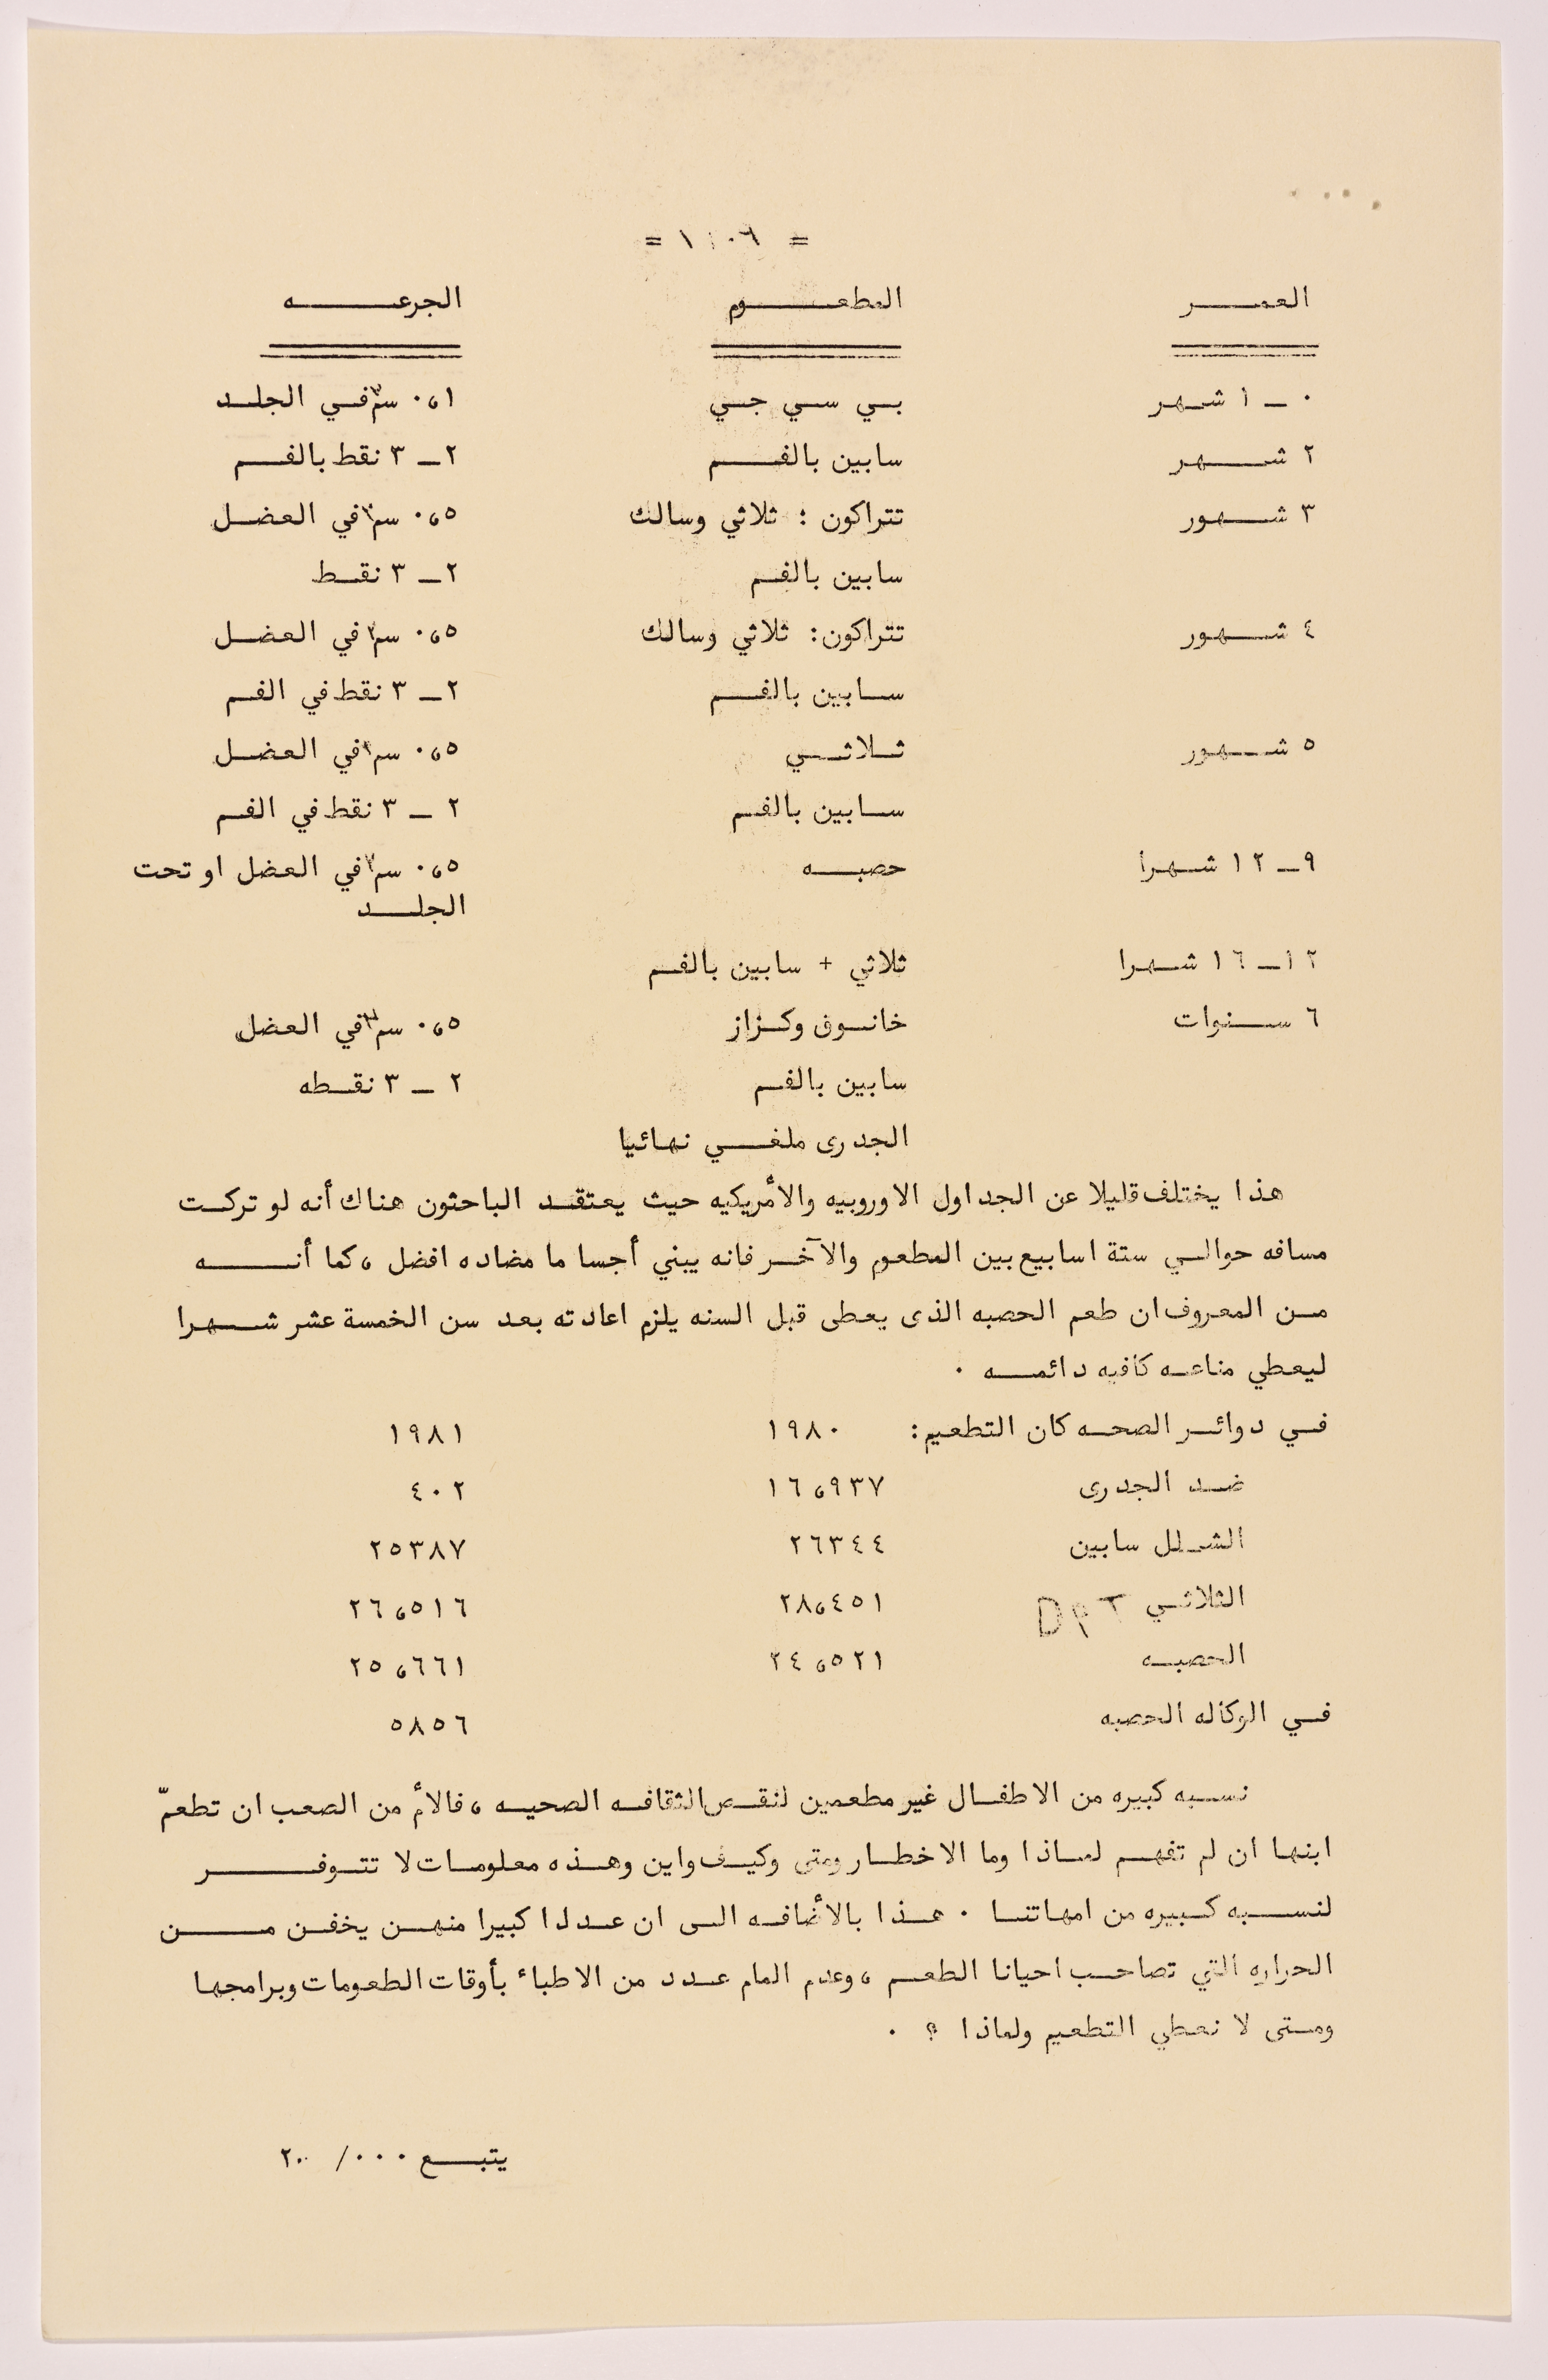 = ١٠٦ =
العمر المطعوم الجرعه
٠ ـ ١ شهر بي سي جي ٠،١ سم٣ في الجلد
٢ شهر سابين بالفم ٢ـ ٣ نقط بالفم
٣ شهور تتراكون : ثلاثي وسالك ٠،٥ سم٣ في العضل
سابين بالفم ٢ـ ٣ نقط
٤ شهور تتراكون: ثلاثي وسالك ٠،٥ سم٣ في العضل
سابين بالفم ٢ـ ٣ نقط في الفم
٥ شهور ثلاثي ٠،٥ سم٣ في العضل
سابين بالفم ٢ ـ ٣ نقط في الفم
٩ـ ١٢ شهرا حصبه ٠،٥ سم٣ في العضل او تحت
الجلد
١٢ـ ١٦ شهرا ثلاثي + سابين بالفم
٦ سنوات خانوق وكزاز ٠،٥ سم٣ في العضل
سابين بالفم ٢ ـ ٣ نقطه
الجدرى ملغي نهائيا
هذا يختلف قليلا عن الجداول الاوروبيه والأمريكيه حيث يعتقد الباحثون هناك أنه لو تركت
مسافه حوالي ستة اسابيع بين المطعوم والآخر فانه يبني أجساما مضاده افضل ، كما أنه
من المعروف ان طعم الحصبه الذى يعطى قبل السنه يلزم اعادته بعد سن الخمسة عشر شهرا
ليعطي مناعه كافيه دائمه .
في دوائر الصحه كان التطعيم: ١٩٨٠ ١٩٨١
ضد الجدرى ١٦،٩٣٧ ٤٠٢
الشلل سابين ٢٦٣٤٤ ٢٥٣٨٧
الثلاثي DPT ٢٨،٤٥١ ٢٦،٥١٦
الحصبه ٢٤،٥٢١ ٢٥،٦٦١
في الوكاله الحصبه ٥٨٥٦
نسبه كبيره من الاطفال غير مطعمين لنقص الثقافه الصحيه ، فالأم من الصعب ان تطعمّ
ابنها ان لم تفهم لماذا وما الاخطار ومتى وكيف واين وهذه معلومات لا تتوفر
لنسبه كبيره من امهاتنا . هذا بالأضافه الى ان عددا كبيرا منهن يخفن من
الحراره التي تصاحب احيانا الطعم ، وعدم المام عدد من الاطباء بأوقات الطعومات وبرامجها
ومتى لا نعطي التطعيم ولماذا ؟ .
يتبع ٠٠٠/ ٢٠٠